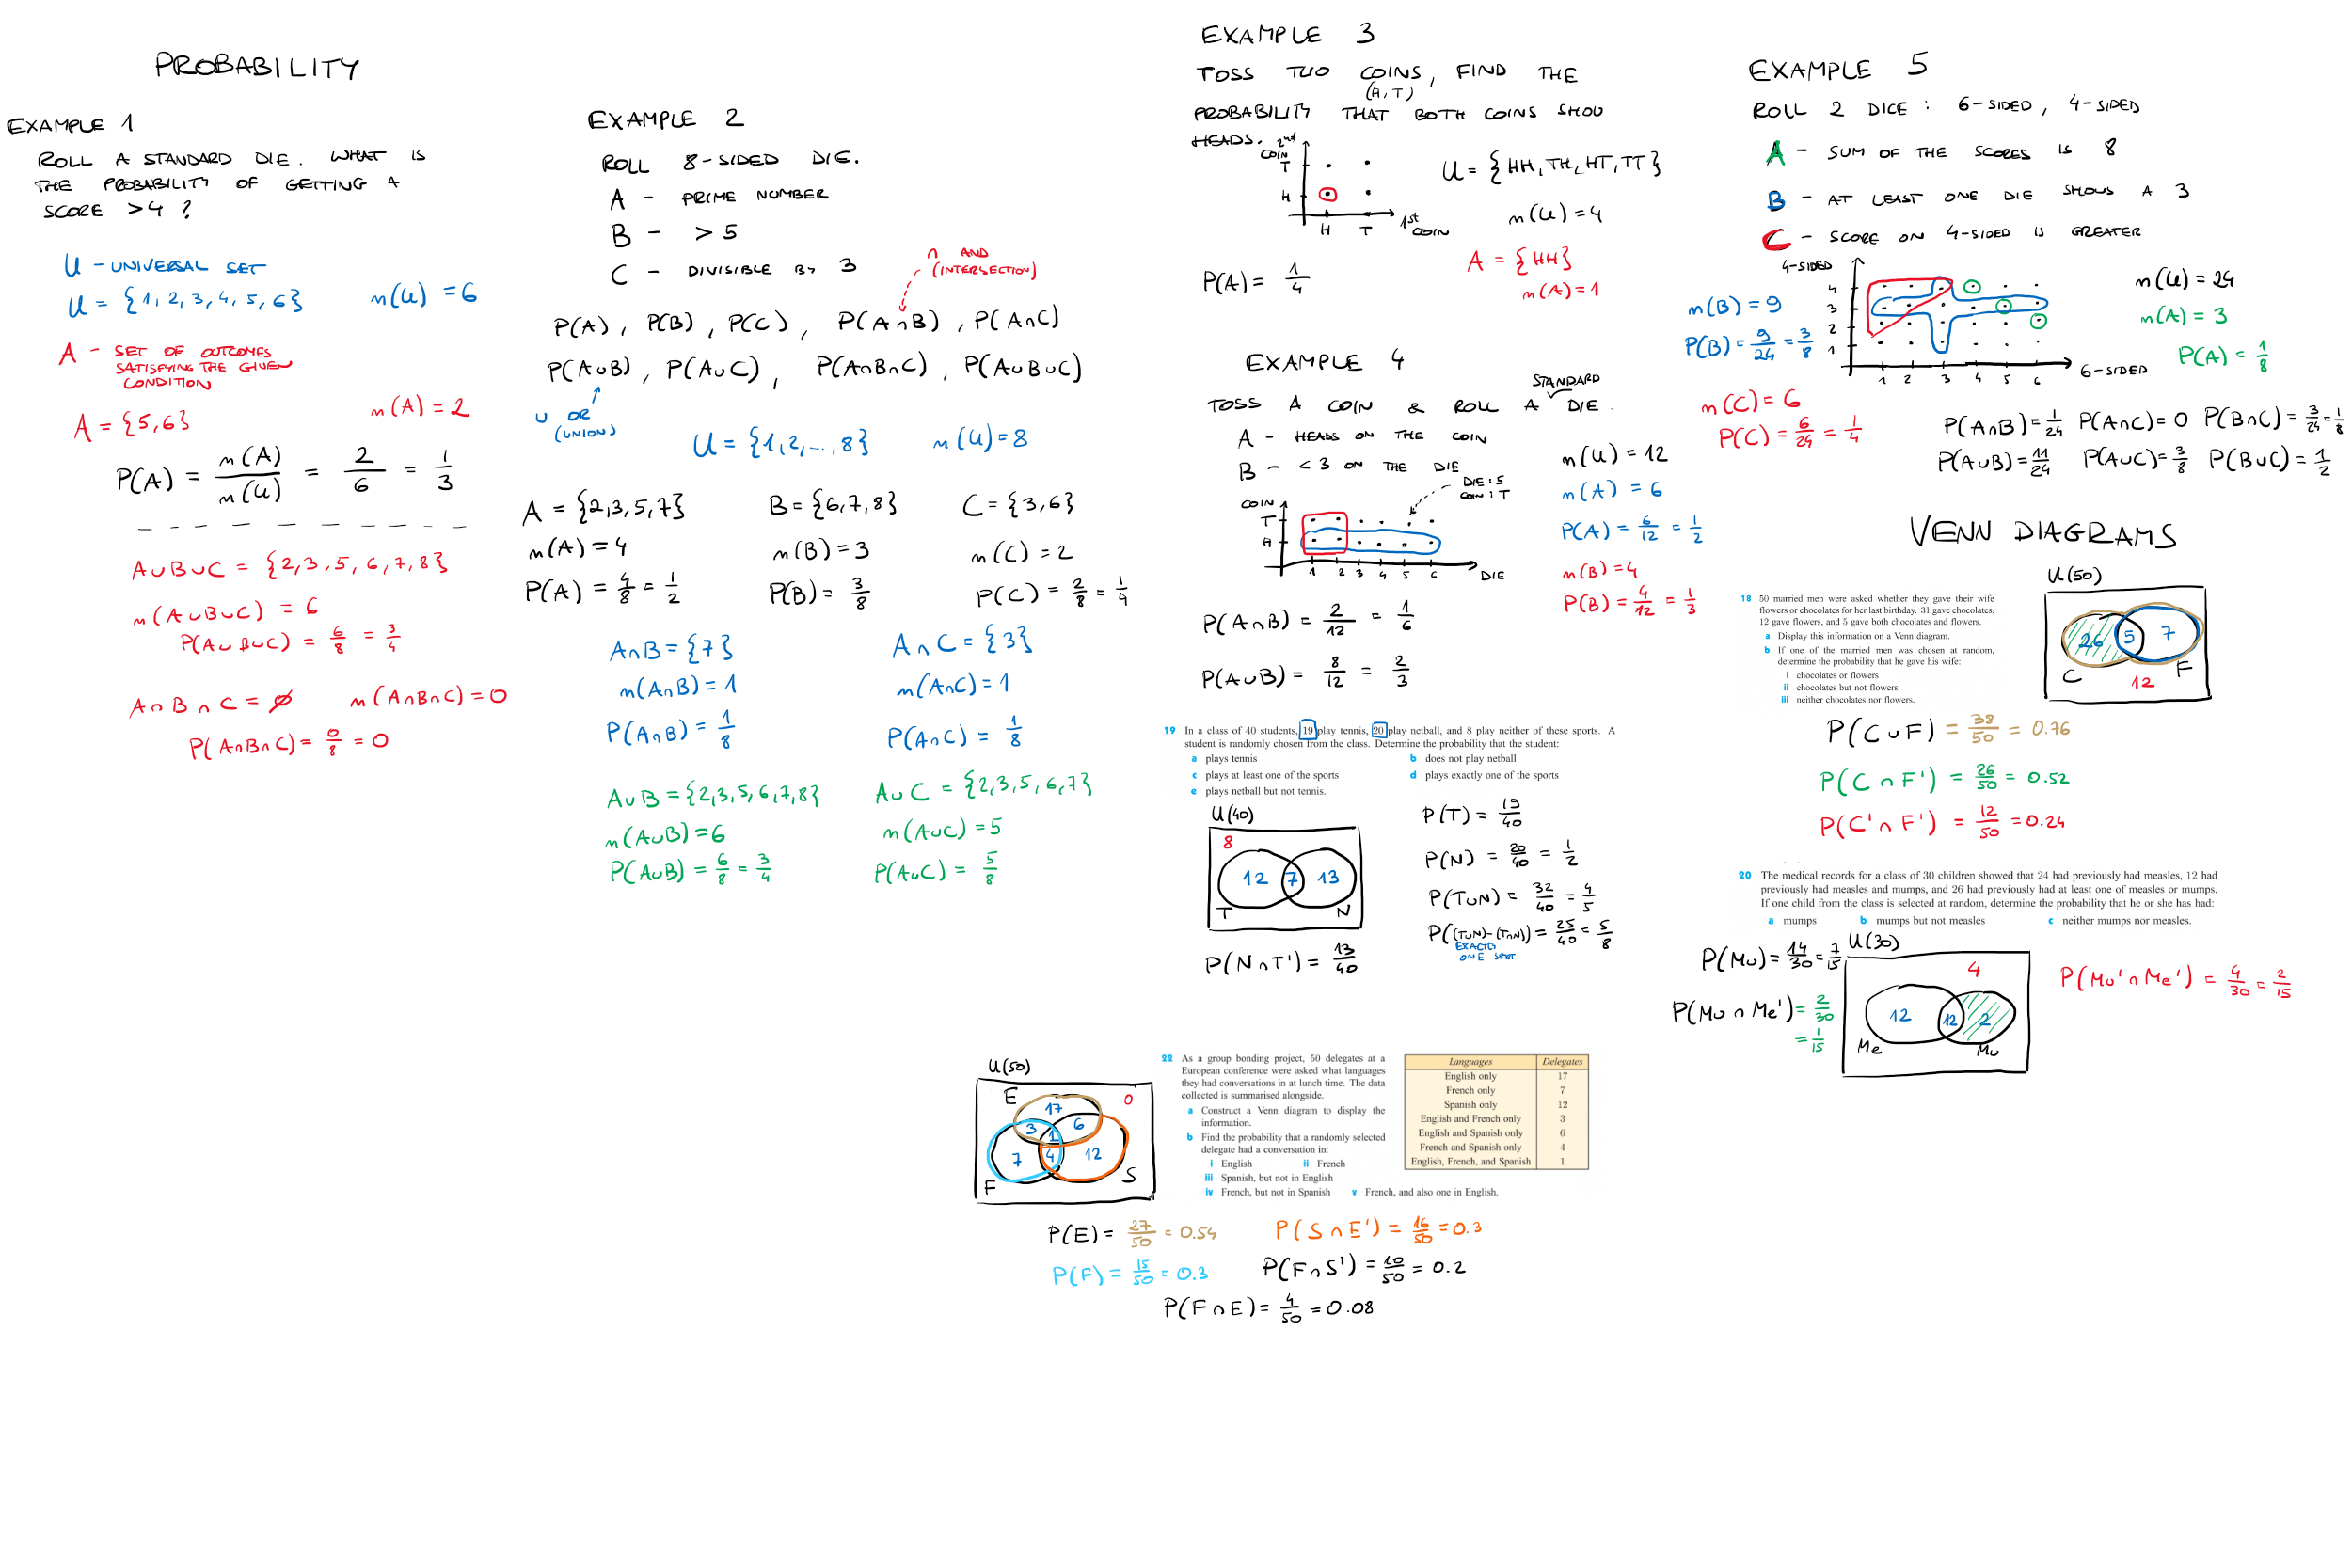 PROBABILITY
EXAMPLE 1
ROLL A STANDARD DIE. WHAT IS
THE PROBABILITY OF GETTING A
SCORE >4 ?
U - UNIVERSAL SET
U = {1, 2, 3, 4, 5, 6} n(U) = 6
A - SET OF OUTCOMES
SATISFYING THE GIVEN
CONDITION
A = {5,6} n(A) = 2
P(A) = n(A)/n(U) = 2/6 = 1/3
A∪B∪C = {2,3,5,6,7,8}
n(A∪B∪C) = 6
P(A∪B∪C) = 6/8 = 3/4
A∩B∩C = ∅ n(A∩B∩C) = 0
P(A∩B∩C) = 0/8 = 0
EXAMPLE 2
ROLL 8-SIDED DIE.
A - PRIME NUMBER
B - > 5
C - DIVISIBLE BY 3
∩ AND
(INTERSECTION)
P(A), P(B), P(C), P(A∩B), P(A∩C)
P(A∪B), P(A∪C), P(A∩B∩C), P(A∪B∪C)
∪ OR
(UNION)
U = {1,2,...,8} n(U)=8
A = {2,3,5,7} B = {6,7,8} C = {3,6}
n(A) = 4 n(B) = 3 n(C) = 2
P(A) = 4/8 = 1/2 P(B) = 3/8 P(C) = 2/8 = 1/4
A∩B = {7} A∩C = {3}
n(A∩B) = 1 n(A∩C) = 1
P(A∩B) = 1/8 P(A∩C) = 1/8
A∪B = {2,3,5,6,7,8} A∪C = {2,3,5,6,7}
n(A∪B) = 6 n(A∪C) = 5
P(A∪B) = 6/8 = 3/4 P(A∪C) = 5/8
EXAMPLE 3
TOSS TWO COINS, FIND THE
(H,T)
PROBABILITY THAT BOTH COINS SHOW
HEADS.
2nd
COIN
T
H
H T
1st
COIN
U = {HH, TH, HT, TT}
n(U) = 4
A = {HH}
n(A) = 1
P(A) = 1/4
EXAMPLE 4
STANDARD
TOSS A COIN & ROLL A DIE.
A - HEADS ON THE COIN
B - <3 ON THE DIE
DIE: 5
COIN: T
COIN
T
H
1 2 3 4 5 6
DIE
n(U) = 12
n(A) = 6
P(A) = 6/12 = 1/2
n(B) = 4
P(B) = 4/12 = 1/3
P(A∩B) = 2/12 = 1/6
P(A∪B) = 8/12 = 2/3
19 In a class of 40 students, 19 play tennis, 20 play netball, and 8 play neither of these sports. A
student is randomly chosen from the class. Determine the probability that the student:
a plays tennis b does not play netball
c plays at least one of the sports d plays exactly one of the sports
e plays netball but not tennis.
U(40)
8
12 7 13
T N
P(T) = 19/40
P(N) = 20/40 = 1/2
P(T∪N) = 32/40 = 4/5
P((T∪N)-(T∩N)) = 25/40 = 5/8
EXACTLY
ONE SPORT
P(N∩T') = 13/40
EXAMPLE 5
ROLL 2 DICE: 6-SIDED, 4-SIDED
A - SUM OF THE SCORES IS 8
B - AT LEAST ONE DIE SHOWS A 3
C - SCORE ON 4-SIDED IS GREATER
4-SIDED
4
3
2
1
1 2 3 4 5 6
6-SIDED
n(B) = 9
P(B) = 9/24 = 3/8
n(C) = 6
P(C) = 6/24 = 1/4
n(U) = 24
n(A) = 3
P(A) = 1/8
P(A∩B) = 1/24 P(A∩C) = 0 P(B∩C) = 3/24 = 1/8
P(A∪B) = 11/24 P(A∪C) = 3/8 P(B∪C) = 1/2
VENN DIAGRAMS
18 50 married men were asked whether they gave their wife
flowers or chocolates for her last birthday. 31 gave chocolates,
12 gave flowers, and 5 gave both chocolates and flowers.
a Display this information on a Venn diagram.
b If one of the married men was chosen at random,
determine the probability that he gave his wife:
i chocolates or flowers
ii chocolates but not flowers
iii neither chocolates nor flowers.
U(50)
26 5 7
C F
12
P(C∪F) = 38/50 = 0.76
P(C∩F') = 26/50 = 0.52
P(C'∩F') = 12/50 = 0.24
20 The medical records for a class of 30 children showed that 24 had previously had measles, 12 had
previously had measles and mumps, and 26 had previously had at least one of measles or mumps.
If one child from the class is selected at random, determine the probability that he or she has had:
a mumps b mumps but not measles c neither mumps nor measles.
P(Mu) = 14/30 = 7/15
P(Mu∩Me') = 2/30
= 1/15
U(30)
4
12 12 2
Me Mu
P(Mu'∩Me') = 4/30 = 2/15
U(50)
E
17 0
3 1 6
7 4 12
F S
22 As a group bonding project, 50 delegates at a
European conference were asked what languages
they had conversations in at lunch time. The data
collected is summarised alongside.
a Construct a Venn diagram to display the
information.
b Find the probability that a randomly selected
delegate had a conversation in:
i English ii French
iii Spanish, but not in English
iv French, but not in Spanish v French, and also one in English.
Languages Delegates
English only 17
French only 7
Spanish only 12
English and French only 3
English and Spanish only 6
French and Spanish only 4
English, French, and Spanish 1
P(E) = 27/50 = 0.54 P(S∩E') = 16/50 = 0.3
P(F) = 15/50 = 0.3 P(F∩S') = 10/50 = 0.2
P(F∩E) = 4/50 = 0.08